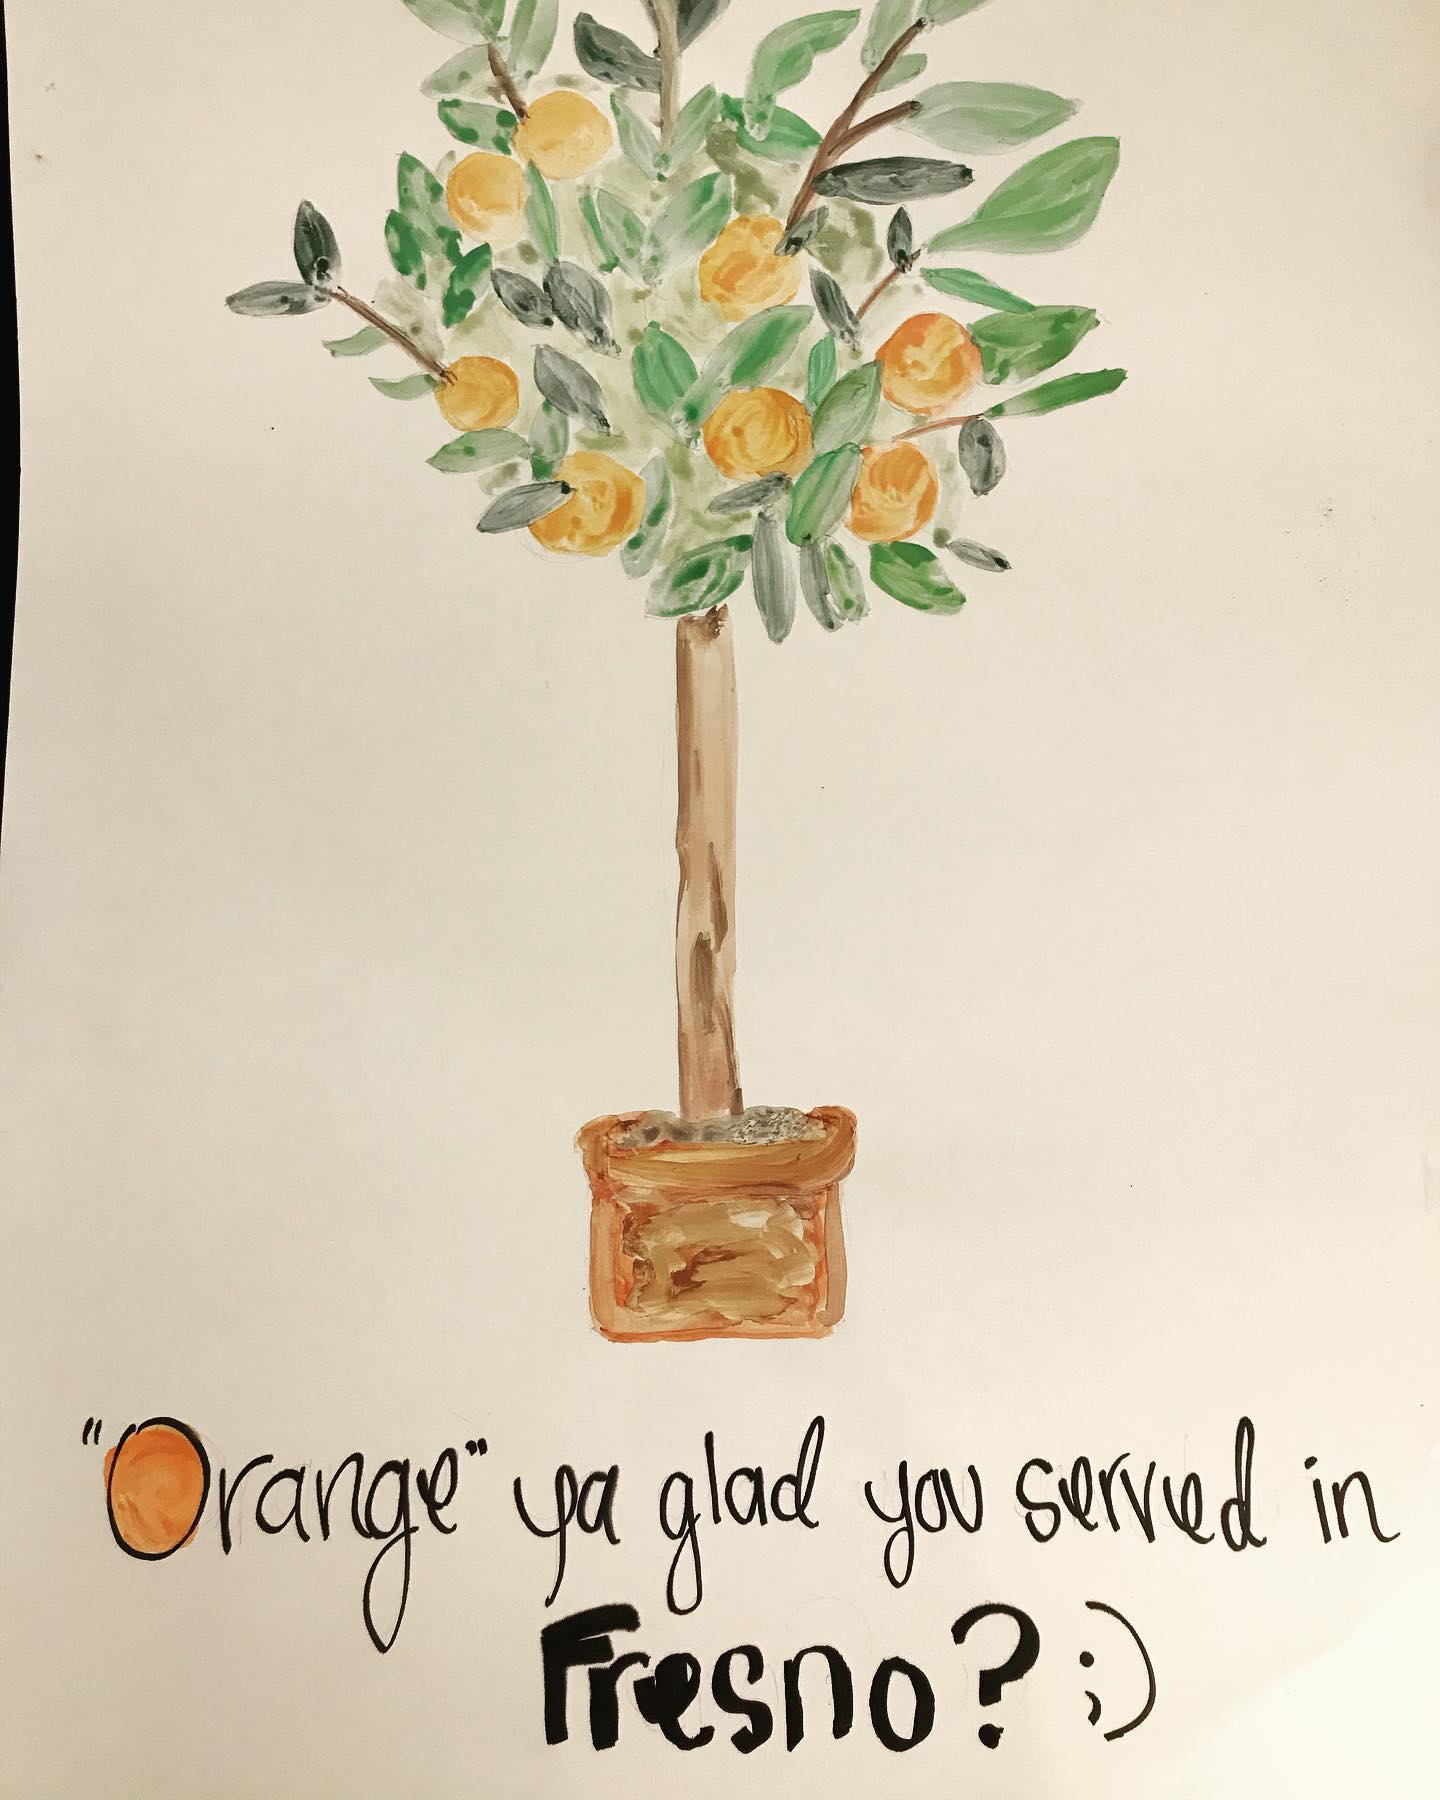 "Orange" ya glad you served in
Fresno? ;)